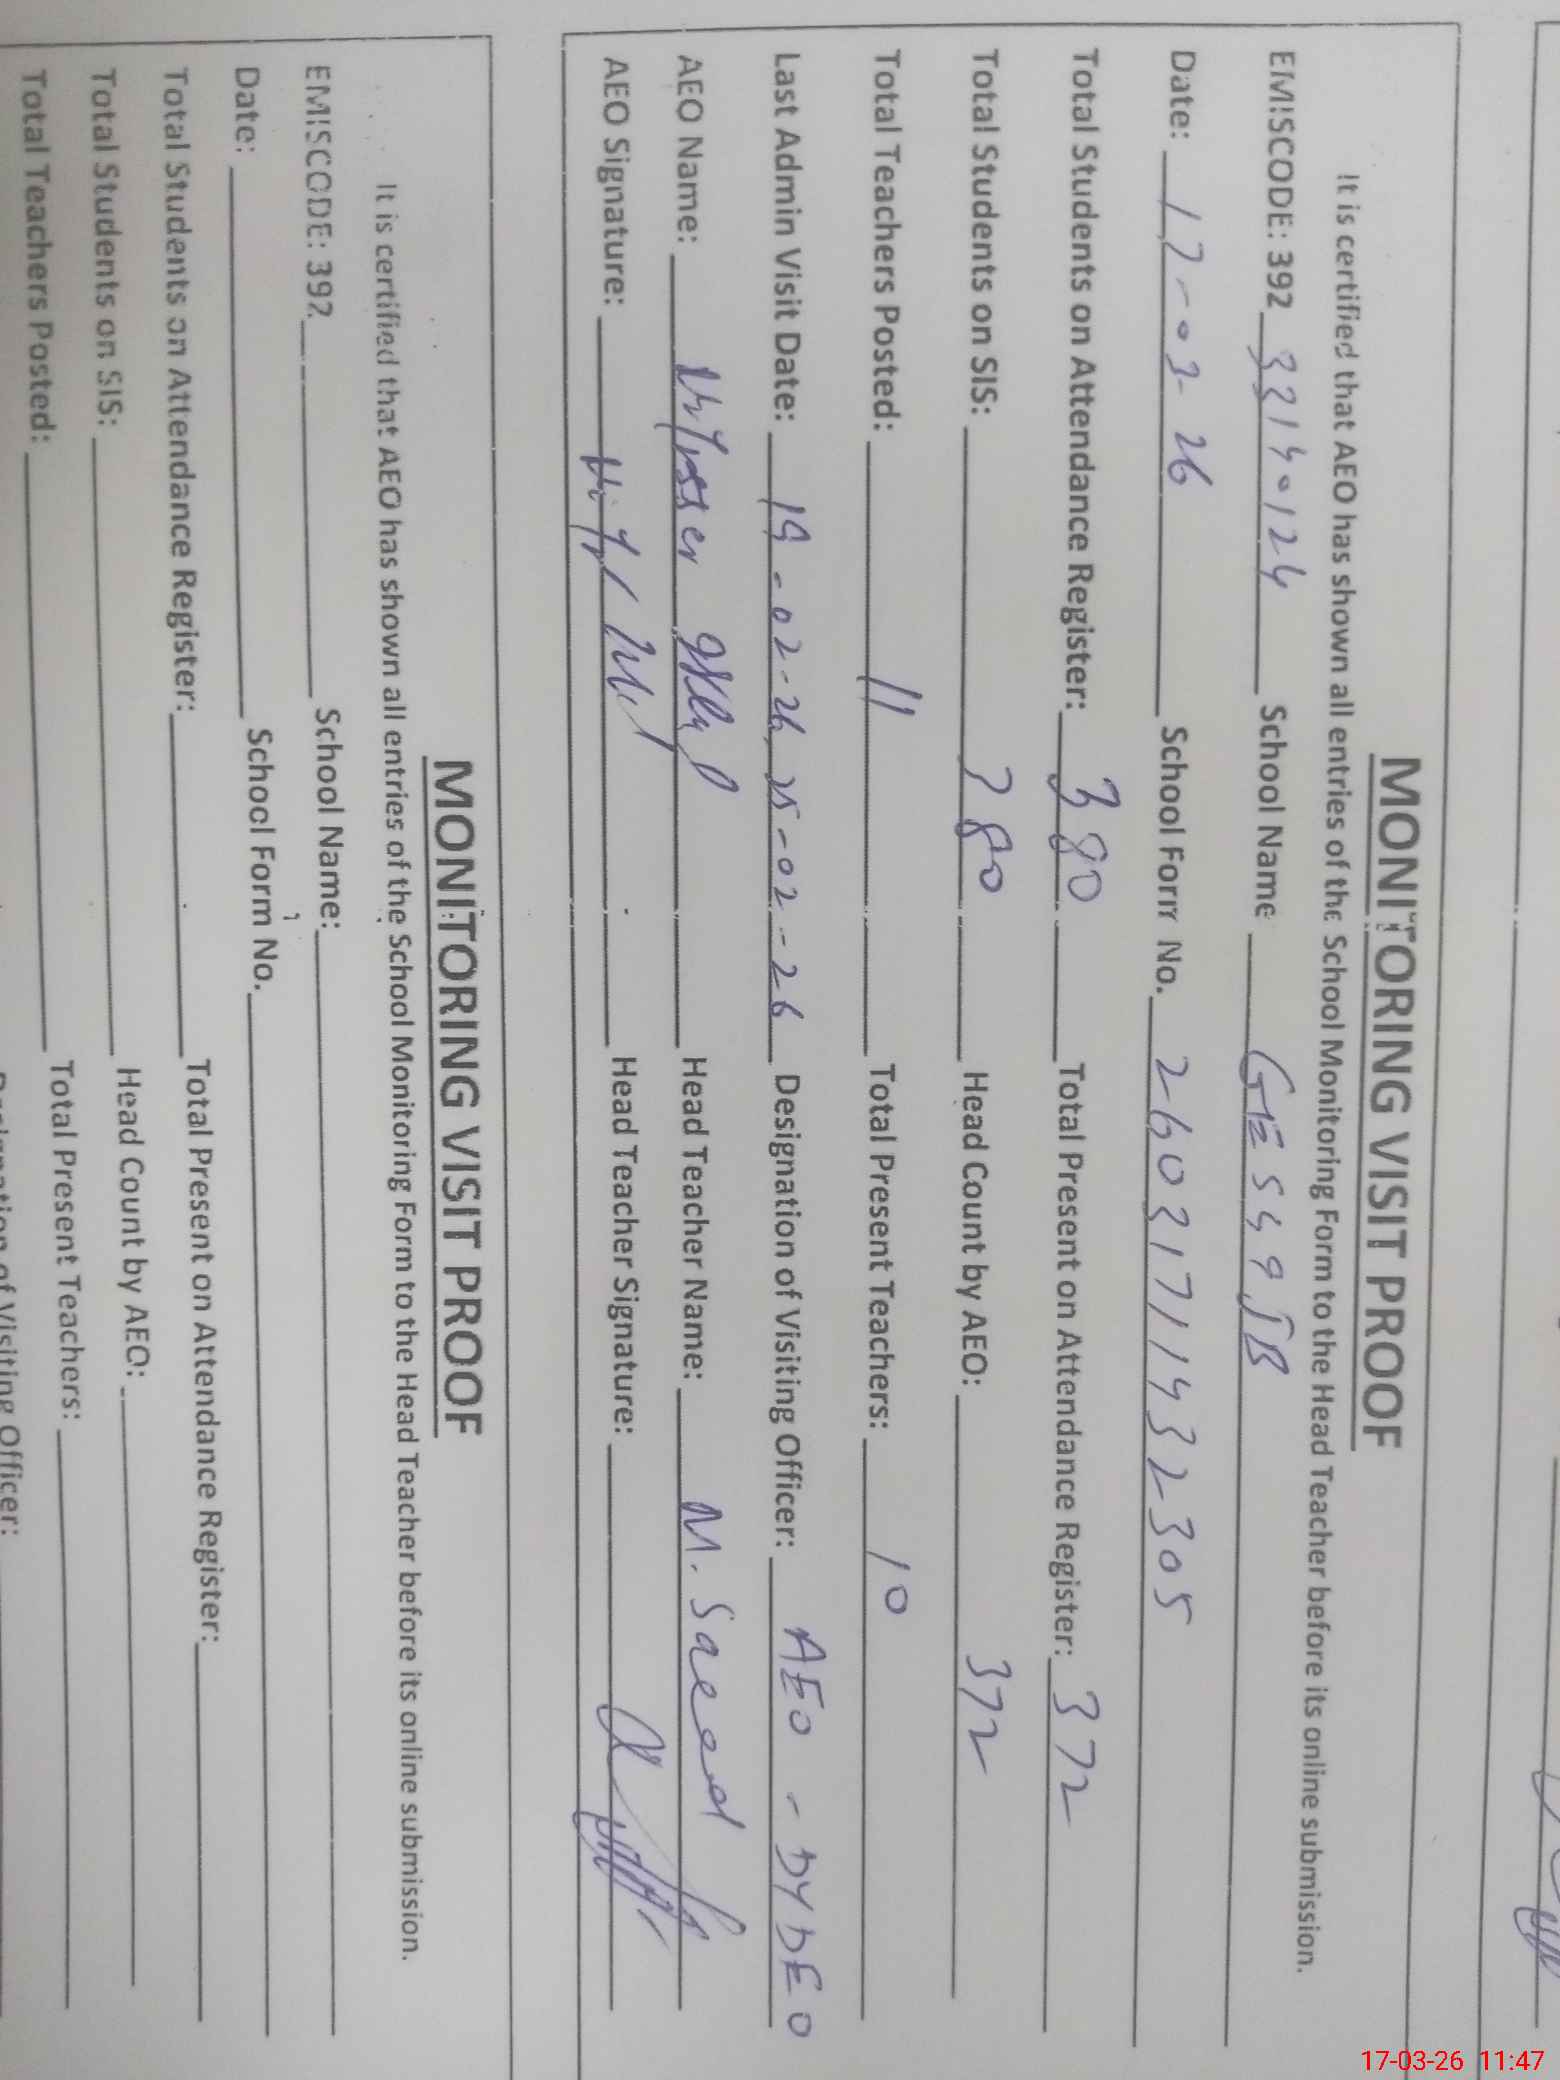 MONITORING VISIT PROOF
It is certified that AEO has shown all entries of the School Monitoring Form to the Head Teacher before its online submission.
EMISCODE: 392 33140124 School Name GES 549 JB
Date: 17-03-26 School Form No. 26031711432305
Total Students on Attendance Register: 380 Total Present on Attendance Register: 372
Total Students on SIS: 380 Head Count by AEO: 372
Total Teachers Posted: 11 Total Present Teachers: 10
Last Admin Visit Date: 19-02-26, 25-02-26 Designation of Visiting Officer: AEO - DYDEO
AEO Name: Head Teacher Name: M. Saeed
AEO Signature: Head Teacher Signature:
MONITORING VISIT PROOF
It is certified that AEO has shown all entries of the School Monitoring Form to the Head Teacher before its online submission.
EMISCODE: 392 School Name:
Date: School Form No.
Total Students on Attendance Register: Total Present on Attendance Register:
Total Students on SIS: Head Count by AEO:
Total Teachers Posted: Total Present Teachers:
of Visiting Officer:
17-03-26 11:47